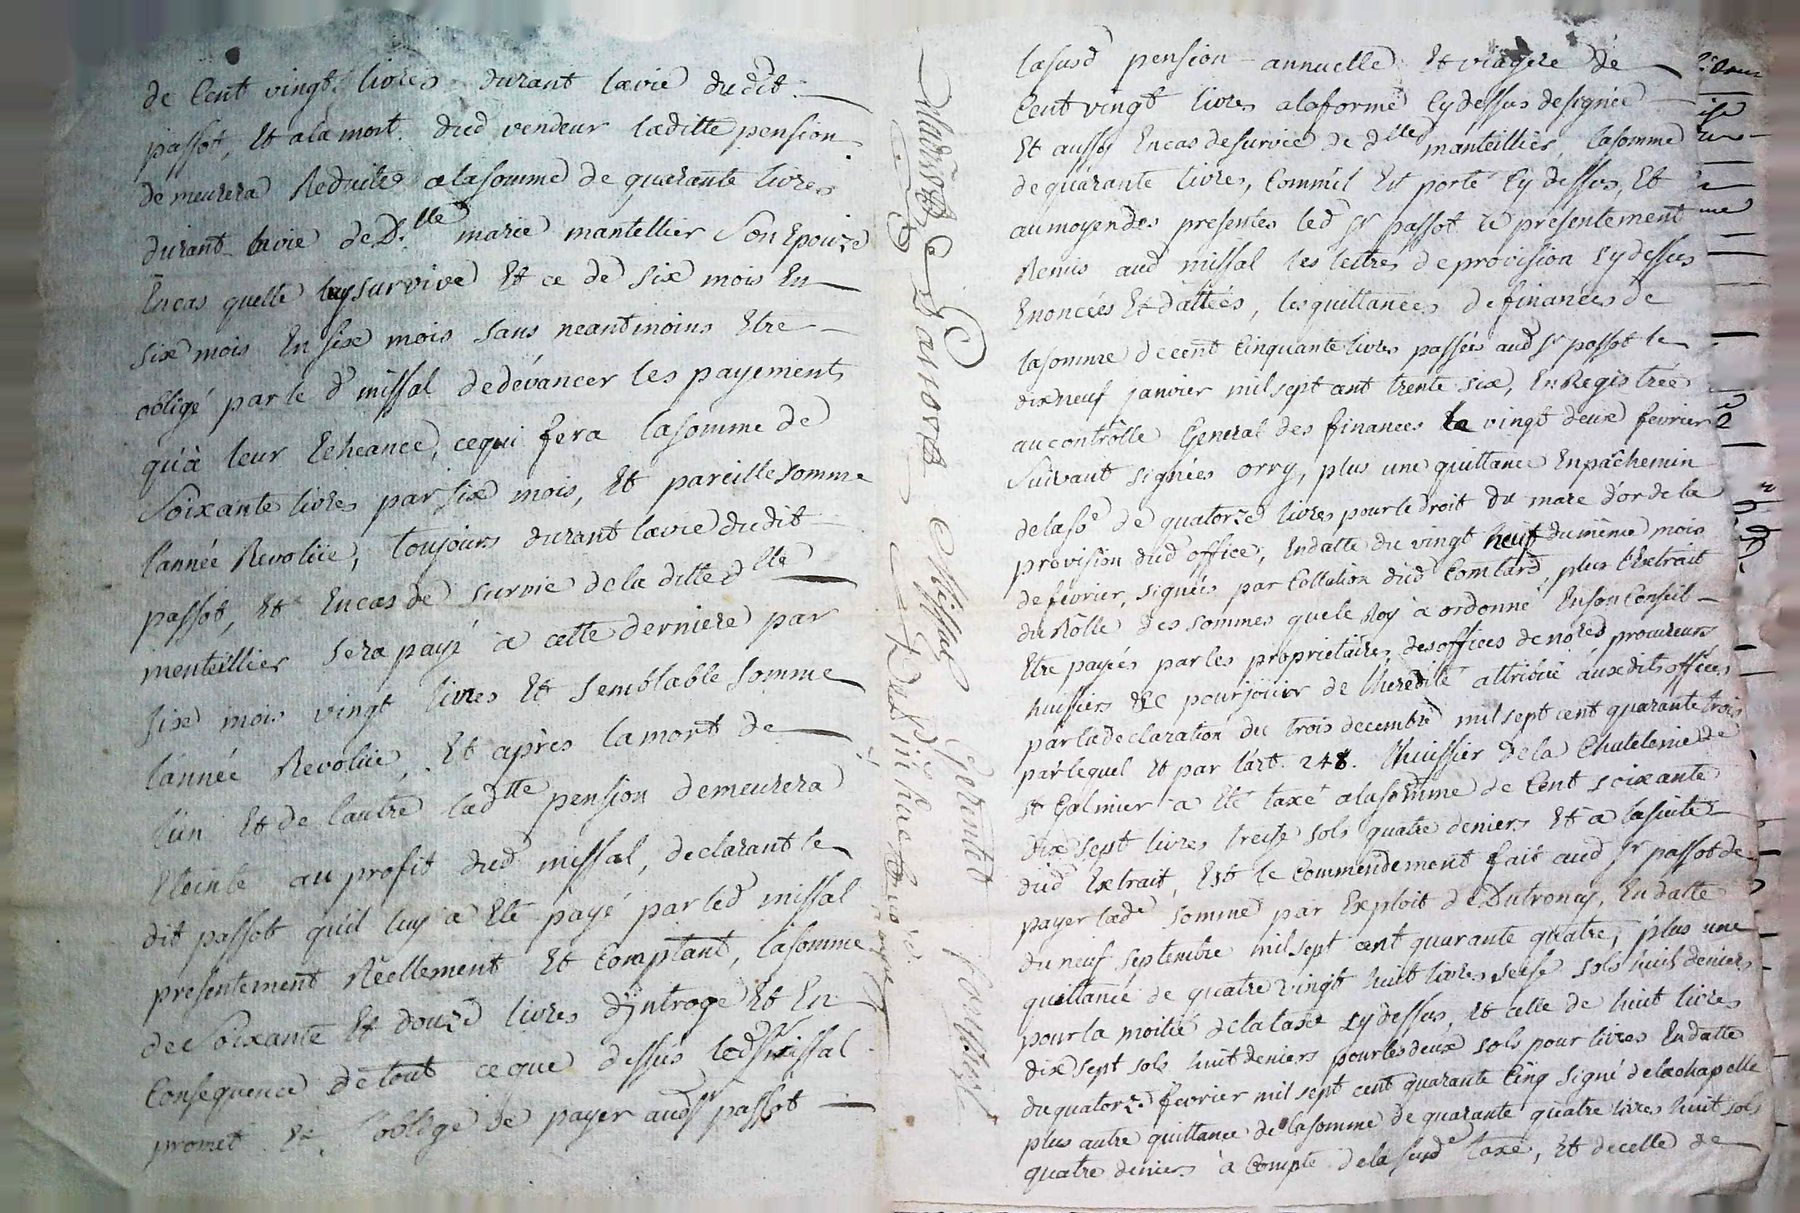 de Cent vingt livres durant lavie dudit
passot, Et ala mort dud vendeur laditte pension
demeurera Reduite alasomme de quarante livres
durant lavie de D.lle marie mantellier Son Epouze
Encas quelle luy survive Et ce de six mois En
six mois En six mois sans neantmoins Etre
obligé par le d missal dedévancer les payements
qu'à leur Echeance, cequi fera lasomme de
Soixante livres par six mois, Et pareille somme
l'année Revolüe, toujours durant lavie dudit
passot, Et Encas de survie dela ditte dlle
menteillier sera payé a cette derniere par
six mois vingt livres Et semblable somme
l'année Revolüe, Et après lamort de
l'un Et de l'autre ladtte pension demeurera
Eteinte au profit dud missal, declarant le
dit passot qu'il luy a Eté payé par led missal
presentement Réellement Et Comptant, lasomme
de Soixante Et douze livres d'introge Et En
Consequence de tout ceque dessus led sr missal
promet Et s'oblige de payer aud sr passot
lasusd pension annuelle Et viagere de
Cent vingt livres alaforme Cydessus designée
Et aussy Encas desurvie de dlle manteillier, lasomme
de quarante livres, Comm'il Est porté Cydessus, Et
aumoyendes presentes led sr passot à presentement
Remis aud missal les lettres deprovision sydessus
Enoncées Et dattées, lesquittances definances de
lasomme decent Cinquante livres passées aud sr passot le
dixneuf janvier mil sept cent trente six, EnRegistrée
aucontrôlle General des finances le vingt deux fevrier
Suivant signées orry, plus une quittance Enpâchemin
delase de quatorze livres pour le droit du marc d'or de la
provision dud office, Endatte du vingt neuf dumême mois
defevrier, signées par Collation dud Comlard, plus l'Extrait
du Rôlle des sommes que le Roy à ordonné Enson Conseil
Etre payées par les proprietaires desoffices de nores procureurs
huissiers &c pour joüir de l'heredité attribué auxdits offices
par ladeclaration du trois decembre mil sept cent quarante trois
par lequel Et par l'art. 248. l'huissier dela Chatelenie de
st Galmier a Eté taxé alasomme de Cent soixante
dix sept livres treize sols quatre deniers Et a lasuite
dud Extrait, Est le commendement fait aud sr passot de
payer lade somme par Exploit de Dutronay, Endatte
duneuf septembre mil sept cent quarante quatre, plus une
quittance de quatre vingt huit livres seise sols huit deniers
pour la moitié delataxe sydessus, Et celle de huit livres
dix sept sols huit deniers pour les deux sols pour livres Endatte
duquatorze fevrier mil sept cent quarante Cinq signé delachapelle
plus autre quittance de lasomme de quarante quatre livres huit sols
quatre deniers à compte dela susde taxe, Et decelle de